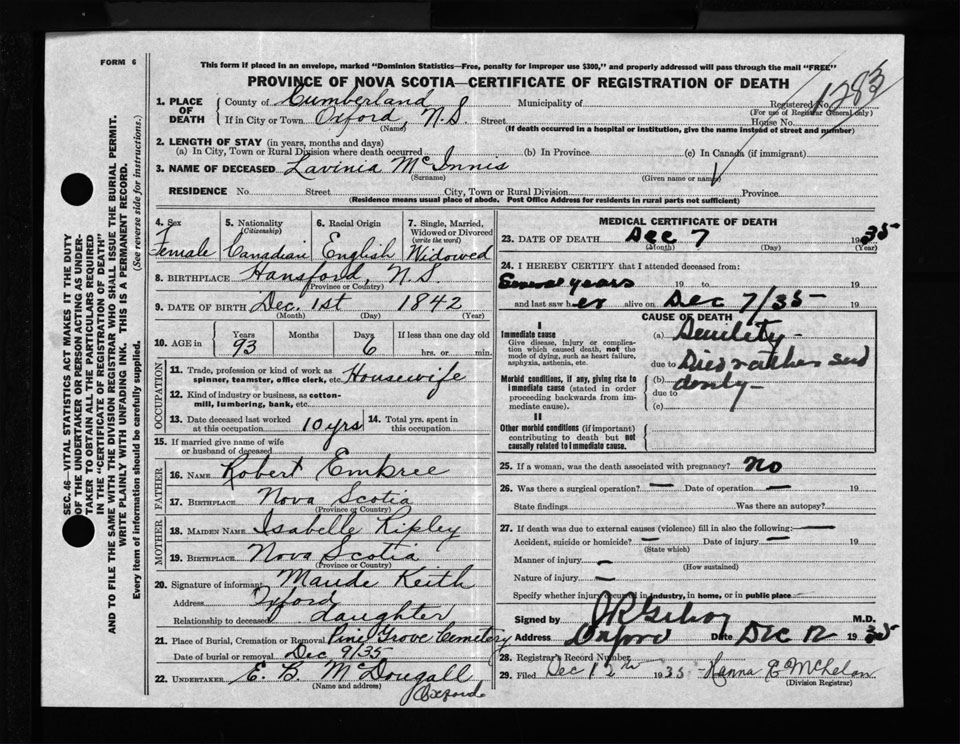 FORM 6
This form if placed in an envelope, marked "Dominion Statistics—Free, penalty for improper use $300," and properly addressed will pass through the mail "FREE"
PROVINCE OF NOVA SCOTIA—CERTIFICATE OF REGISTRATION OF DEATH
1283
1. PLACE OF DEATH
County of Cumberland Municipality of Registered No.
(For use of Registrar General only)
If in City or Town Oxford, N.S. Street House No.
(Name) (If death occurred in a hospital or institution, give the name instead of street and number)
2. LENGTH OF STAY (in years, months and days)
(a) In City, Town or Rural Division where death occurred (b) In Province (c) In Canada (if immigrant)
3. NAME OF DECEASED Lavinia McInnis
(Surname) (Given name or names)
RESIDENCE No. Street City, Town or Rural Division Province
(Residence means usual place of abode. Post Office Address for residents in rural parts not sufficient)
4. Sex Female
5. Nationality (Citizenship) Canadian
6. Racial Origin English
7. Single, Married, Widowed or Divorced (write the word) Widowed
8. BIRTHPLACE Hansford, N.S.
(Province or Country)
9. DATE OF BIRTH Dec. 1st 1842
(Month) (Day) (Year)
10. AGE in Years 93 Months Days 6 If less than one day old hrs. or min.
OCCUPATION
11. Trade, profession or kind of work as spinner, teamster, office clerk, etc. Housewife
12. Kind of industry or business, as cotton-mill, lumbering, bank, etc.
13. Date deceased last worked at this occupation 10 yrs
14. Total yrs. spent in this occupation
15. If married give name of wife or husband of deceased
FATHER
16. NAME Robert Embree
17. BIRTHPLACE Nova Scotia
(Province or Country)
MOTHER
18. MAIDEN NAME Isabelle Ripley
19. BIRTHPLACE Nova Scotia
(Province or Country)
20. Signature of informant Maude Keith
Address Oxford
Relationship to deceased daughter
21. Place of Burial, Cremation or Removal Pine Grove Cemetery
Date of burial or removal Dec 9/35
22. UNDERTAKER E. B. McDougall
(Name and address) Oxford
MEDICAL CERTIFICATE OF DEATH
23. DATE OF DEATH Dec 7 1935
(Month) (Day) (Year)
24. I HEREBY CERTIFY that I attended deceased from:
Several years 19 to 19
and last saw her alive on Dec 7/35 19
CAUSE OF DEATH
I
Immediate cause
Give disease, injury or complication which caused death, not the mode of dying, such as heart failure, asphyxia, asthenia, etc.
(a) Senility
due to Died rather suddenly
Morbid conditions, if any, giving rise to immediate cause (stated in order proceeding backwards from immediate cause).
(b)
due to
(c)
II
Other morbid conditions (if important) contributing to death but not causally related to immediate cause.
25. If a woman, was the death associated with pregnancy? No
26. Was there a surgical operation? — Date of operation — 19
State findings Was there an autopsy?
27. If death was due to external causes (violence) fill in also the following:—
Accident, suicide or homicide? — Date of injury — 19
(State which)
Manner of injury —
(How sustained)
Nature of injury —
Specify whether injury occurred in industry, in home, or in public place
Signed by M.D.
Address Oxford Date Dec 12 1935
28. Registrar's Record Number
29. Filed Dec 12th 1935
(Division Registrar)
SEC. 46—VITAL STATISTICS ACT MAKES IT THE DUTY
OF THE UNDERTAKER OR PERSON ACTING AS UNDERTAKER TO OBTAIN ALL THE PARTICULARS REQUIRED
IN THE "CERTIFICATE OF REGISTRATION OF DEATH"
AND TO FILE THE SAME WITH THE DIVISION REGISTRAR WHO SHALL ISSUE THE BURIAL PERMIT.
WRITE PLAINLY WITH UNFADING INK. THIS IS A PERMANENT RECORD.
Every item of information should be carefully supplied. (See reverse side for instructions.)